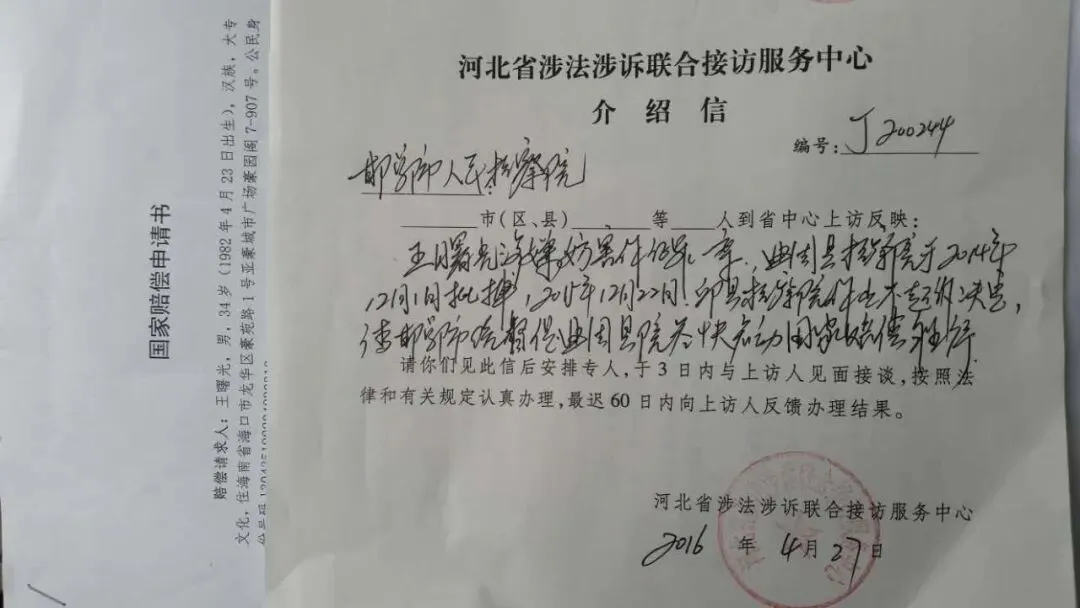 国家赔偿申请书
赔偿请求人：王曙光，男，34岁（1982年4月23日出生），汉族，大专
文化，住海南省海口市龙华区豪苑路1号亚豪城市广场豪园阁7-907号。公民身
河北省涉法涉诉联合接访服务中心
介绍信
编号：J200244
邯郸市人民检察院
市（区、县） 等 人到省中心上访反映：
王曙光涉嫌妨害作证一案，曲周县检察院于2014年
12月1日批捕，2015年12月22日，邱县检察院作出不起诉决定，
请邯郸市院督促曲周县院尽快启动国家赔偿程序
请你们见此信后安排专人，于3日内与上访人见面接谈，按照法
律和有关规定认真办理，最迟60日内向上访人反馈办理结果。
河北省涉法涉诉联合接访服务中心
2016年4月27日